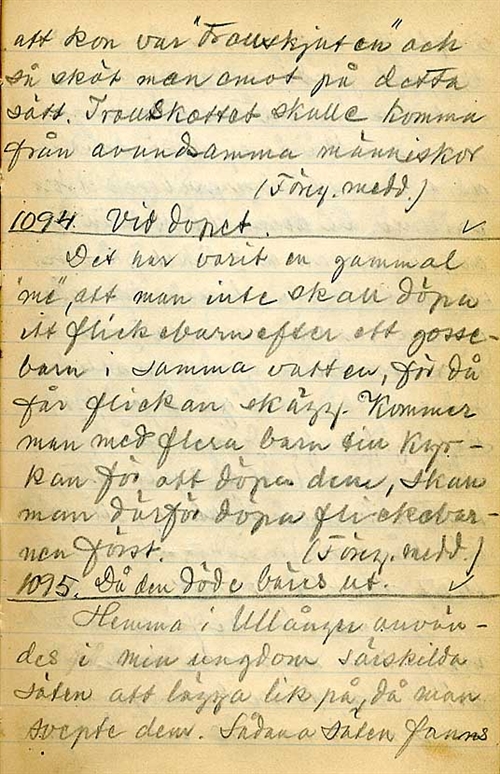 att kon var "Trollskjuten" och
så sköt man emot på detta
sätt. Trollskottet skulle komma
från avundsamma människor
(Föreg. medd.)
1094. Vid dopet. ✓
Det har varit en gammal
att man inte skall döpa
ett flickebarn efter ett gosse-
barn i samma vatten, för då
får flickan skägg. Kommer
man med flera barn till kyr-
kan för att döpa dem, skall
man därför döpa flickebar-
nen först. (Föreg. medd.)
1095. Då den döde bäres ut. ✓
Hemma i Ullånger använ-
des i min ungdom särskilda
säten att lägga lik på, då man
svepte dem. Sådana säten fanns